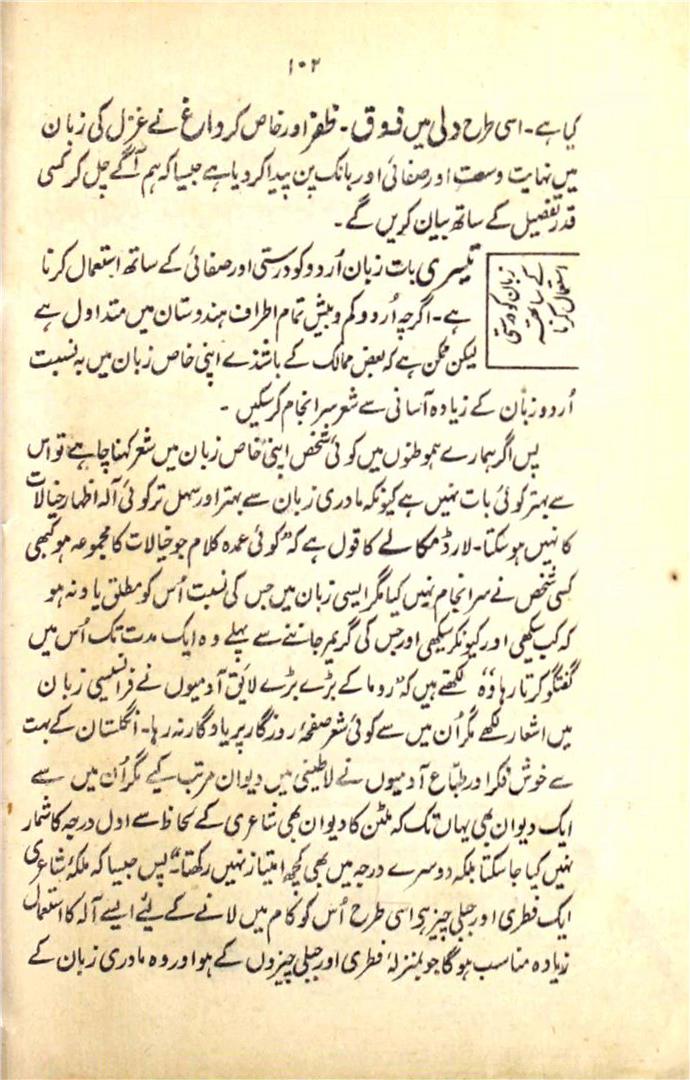 ۱۰۲
کیا ہے۔ اسی طرح دلی میں ذوق۔ ظفر اور خاص کر داغ نے غزل کی زبان
میں نہایت وسعت اور صفائی اور بانک پن پیدا کر دیا ہے جیسا کہ ہم آگے چل کر کسی
قدر تفصیل کے ساتھ بیان کریں گے۔
زبان کو درستی
کے ساتھ
استعمال کرنا
تیسری بات زبان اُردو کو درستی اور صفائی کے ساتھ استعمال کرنا
ہے۔ اگرچہ اُردو کم و بیش تمام اطراف ہندوستان میں متداول ہے
لیکن ممکن ہے کہ بعض ممالک کے باشندے اپنی خاص زبان میں بہ نسبت
اُردو زبان کے زیادہ آسانی سے شعر سرانجام کر سکیں۔
پس اگر ہمارے ہموطنوں میں کوئی شخص اپنی خاص زبان میں شعر کہنا چاہے تو اس
سے بہتر کوئی بات نہیں ہے کیونکہ مادری زبان سے بہتر اور سہل تر کوئی آلہ اظہار خیالات
کا نہیں ہو سکتا۔ لارڈ مکالے کا قول ہے کہ "کوئی عمدہ کلام جو خیالات کا مجموعہ ہو کبھی
کسی شخص نے سرانجام نہیں کیا مگر ایسی زبان میں جس کی نسبت اُس کو مطلق یاد نہ ہو
کہ کب سیکھی اور کیونکر سیکھی اور جس کی گریمر جاننے سے پہلے وہ ایک مدت تک اُس میں
گفتگو کرتا رہا ہو" وہ لکھتے ہیں کہ "روما کے بڑے بڑے لایق آدمیوں نے فرانسیسی زبان
میں اشعار لکھے مگر اُن میں سے کوئی شعر صفحۂ روزگار پر یادگار نہ رہا۔ انگلستان کے بہت
سے خوش فکر اور طبّاع آدمیوں نے لاطینی میں دیوان مرتب کیے مگر اُن میں سے
ایک دیوان بھی یہاں تک کہ ملٹن کا دیوان بھی شاعری کے لحاظ سے اول درجہ کا شمار
نہیں کیا جا سکتا بلکہ دوسرے درجہ میں بھی کچھ امتیاز نہیں رکھتا"۔ پس جیسا کہ ملکۂ شاعری
ایک فطری اور جبلی چیز ہے اسی طرح اُس کو کام میں لانے کے لیٔے ایسے آلہ کا استعمال
زیادہ مناسب ہوگا جو بمنزلۂ فطری اور جبلی چیزوں کے ہو اور وہ مادری زبان کے